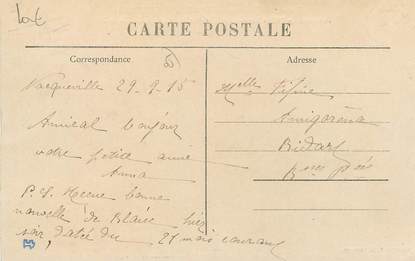 10€
CARTE POSTALE
Correspondance
Vacqueville 29-9-15
Amical bonjour
votre petite amie
Anna
P.S. Reçue bonne
nouvelle de Blaise hier
soir, datée du 21 mois courant
Adresse
Melle
Amigorena
Bidart
Bsses Pées